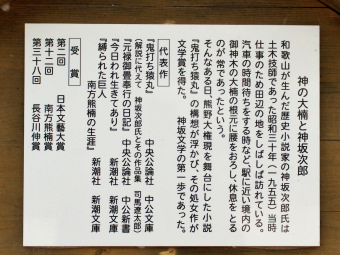 神の大楠と神坂次郎
和歌山が生んだ歴史小説家の神坂次郎氏は
土木技師であった昭和三十年（一九五五）当時
仕事のため田辺の地をしばしば訪れている。
汽車の時間待ちをする時など、駅に近い境内の
御神木の大楠の根元に腰をおろし、休息をとる
のが常であったという。
そんなある日、熊野大権現を舞台にした小説
『鬼打ち猿丸』の構想が浮かび、その処女作が
文学賞を得た。 神坂文学の第一歩であった。
代表作
『鬼打ち猿丸』 中央公論社 中公文庫
（解説に代えて 神坂次郎氏とその作品集 司馬遼太郎）
『元禄御畳奉行の日記』 中央公論社 中公新書
『今日われ生きてあり』 新潮社 新潮文庫
『縛られた巨人 南方熊楠の生涯』
新潮社 新潮文庫
受賞
第二回 日本文藝大賞
第十二回 南方熊楠賞
第三十八回 長谷川伸賞